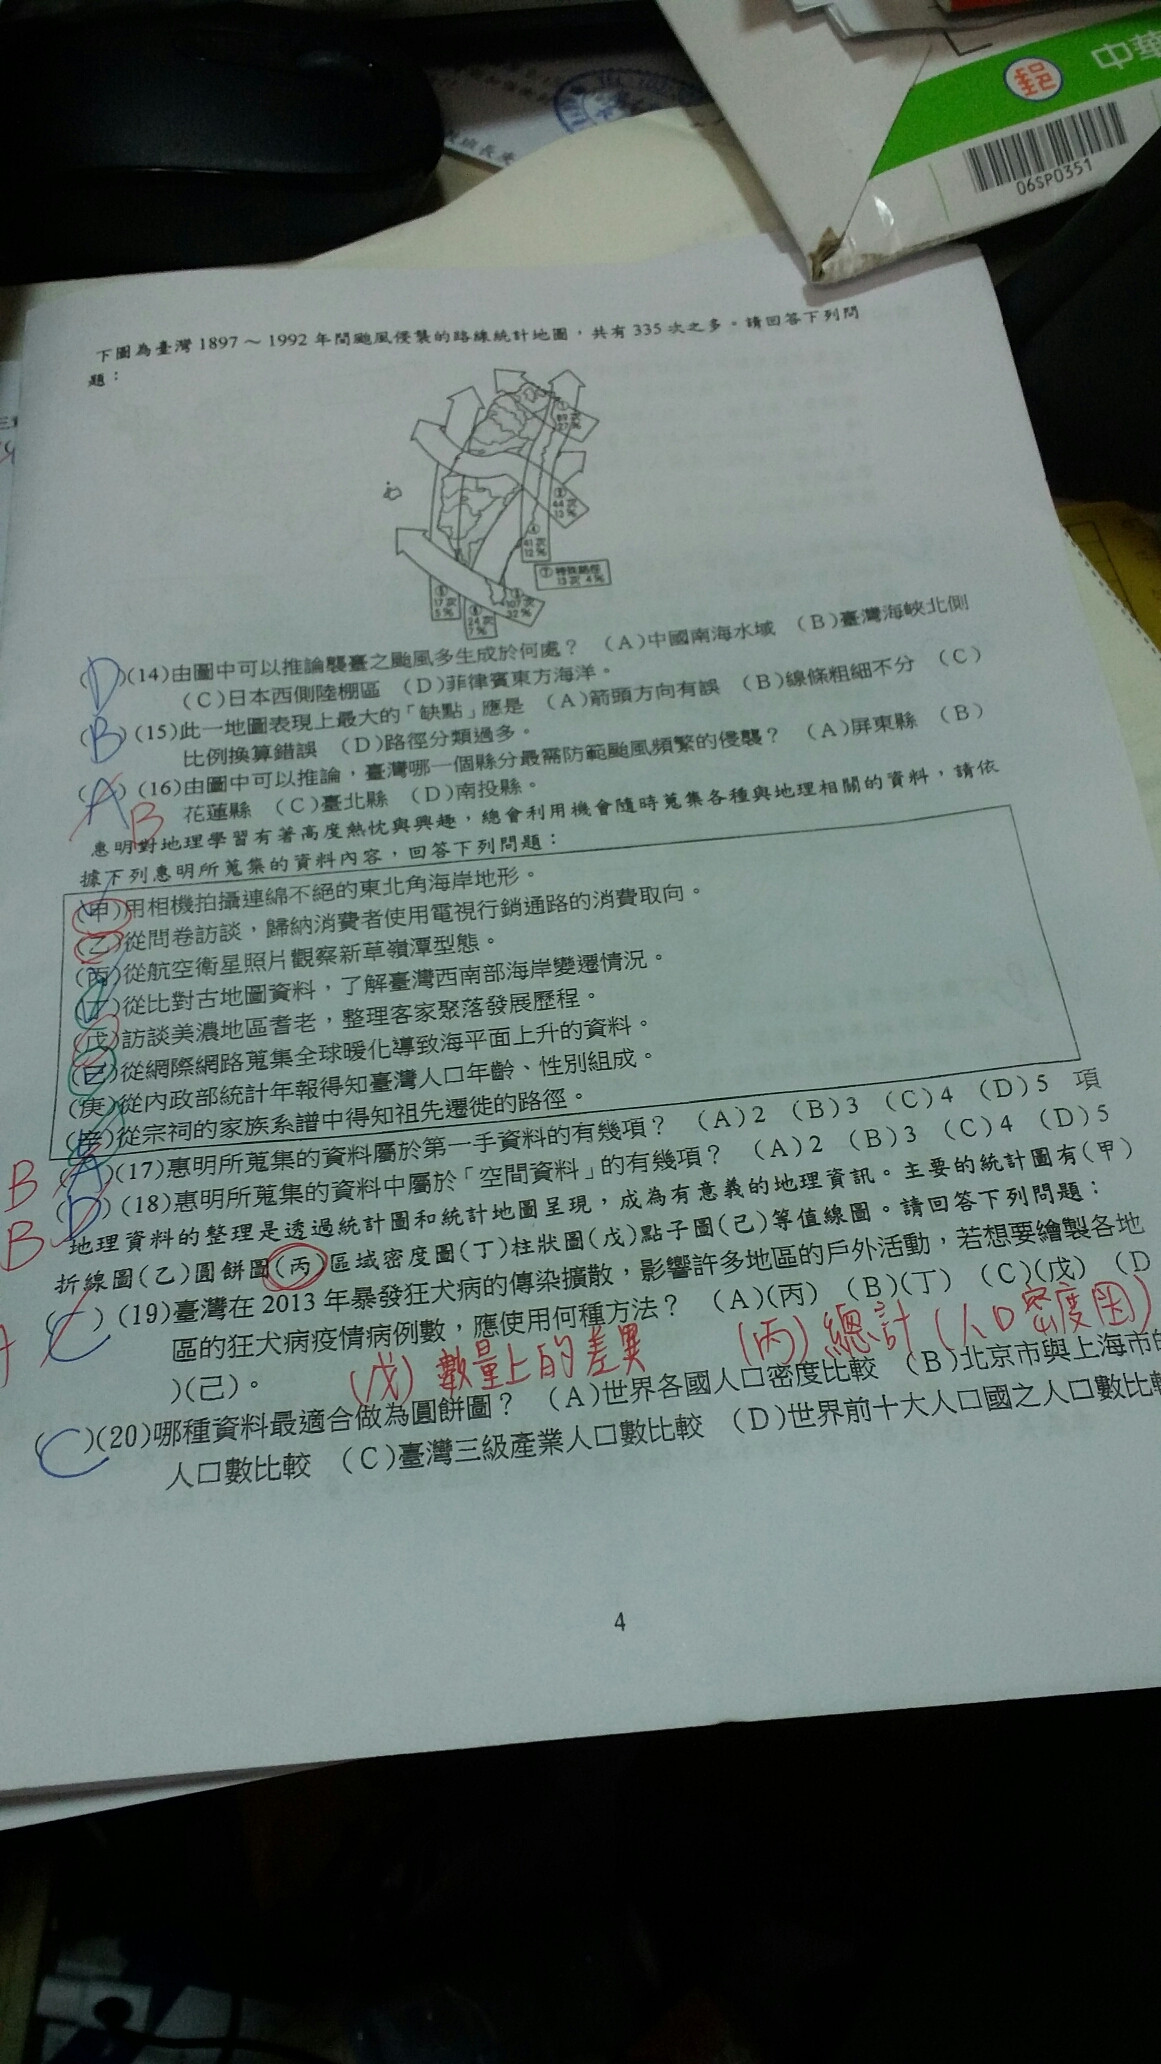 郵
中華
06SP0351
下圖為臺灣1897～1992年間颱風侵襲的路線統計地圖，共有335次之多。請回答下列問
題：
① 89次 27%
② 44次 13%
④ 41次 12%
⑦ 特殊路徑 13次 4%
⑤ 17次 5%
⑥ 24次 7%
③ 107次 32%
(D)(14)由圖中可以推論襲臺之颱風多生成於何處？ (A)中國南海水域 (B)臺灣海峽北側
(C)日本西側陸棚區 (D)菲律賓東方海洋。
(B)(15)此一地圖表現上最大的「缺點」應是 (A)箭頭方向有誤 (B)線條粗細不分 (C)
比例換算錯誤 (D)路徑分類過多。
(A)(16)由圖中可以推論，臺灣哪一個縣分最需防範颱風頻繁的侵襲？ (A)屏東縣 (B)
B
花蓮縣 (C)臺北縣 (D)南投縣。
惠明對地理學習有著高度熱忱與興趣，總會利用機會隨時蒐集各種與地理相關的資料，請依
據下列惠明所蒐集的資料內容，回答下列問題：
(甲)用相機拍攝連綿不絕的東北角海岸地形。
(乙)從問卷訪談，歸納消費者使用電視行銷通路的消費取向。
(丙)從航空衛星照片觀察新草嶺潭型態。
(丁)從比對古地圖資料，了解臺灣西南部海岸變遷情況。
(戊)訪談美濃地區耆老，整理客家聚落發展歷程。
(己)從網際網路蒐集全球暖化導致海平面上升的資料。
(庚)從內政部統計年報得知臺灣人口年齡、性別組成。
(辛)從宗祠的家族系譜中得知祖先遷徙的路徑。
B (A)(17)惠明所蒐集的資料屬於第一手資料的有幾項？ (A)2 (B)3 (C)4 (D)5 項
B (D)(18)惠明所蒐集的資料中屬於「空間資料」的有幾項？ (A)2 (B)3 (C)4 (D)5
地理資料的整理是透過統計圖和統計地圖呈現，成為有意義的地理資訊。主要的統計圖有(甲)
折線圖(乙)圓餅圖(丙)區域密度圖(丁)柱狀圖(戊)點子圖(己)等值線圖。請回答下列問題：
(C)(19)臺灣在2013年暴發狂犬病的傳染擴散，影響許多地區的戶外活動，若想要繪製各地
區的狂犬病疫情病例數，應使用何種方法？ (A)(丙) (B)(丁) (C)(戊) (D
)(己)。
(戊)數量上的差異 (丙)總計(人口密度圖)
(C)(20)哪種資料最適合做為圓餅圖？ (A)世界各國人口密度比較 (B)北京市與上海市的
人口數比較 (C)臺灣三級產業人口數比較 (D)世界前十大人口國之人口數比較
4